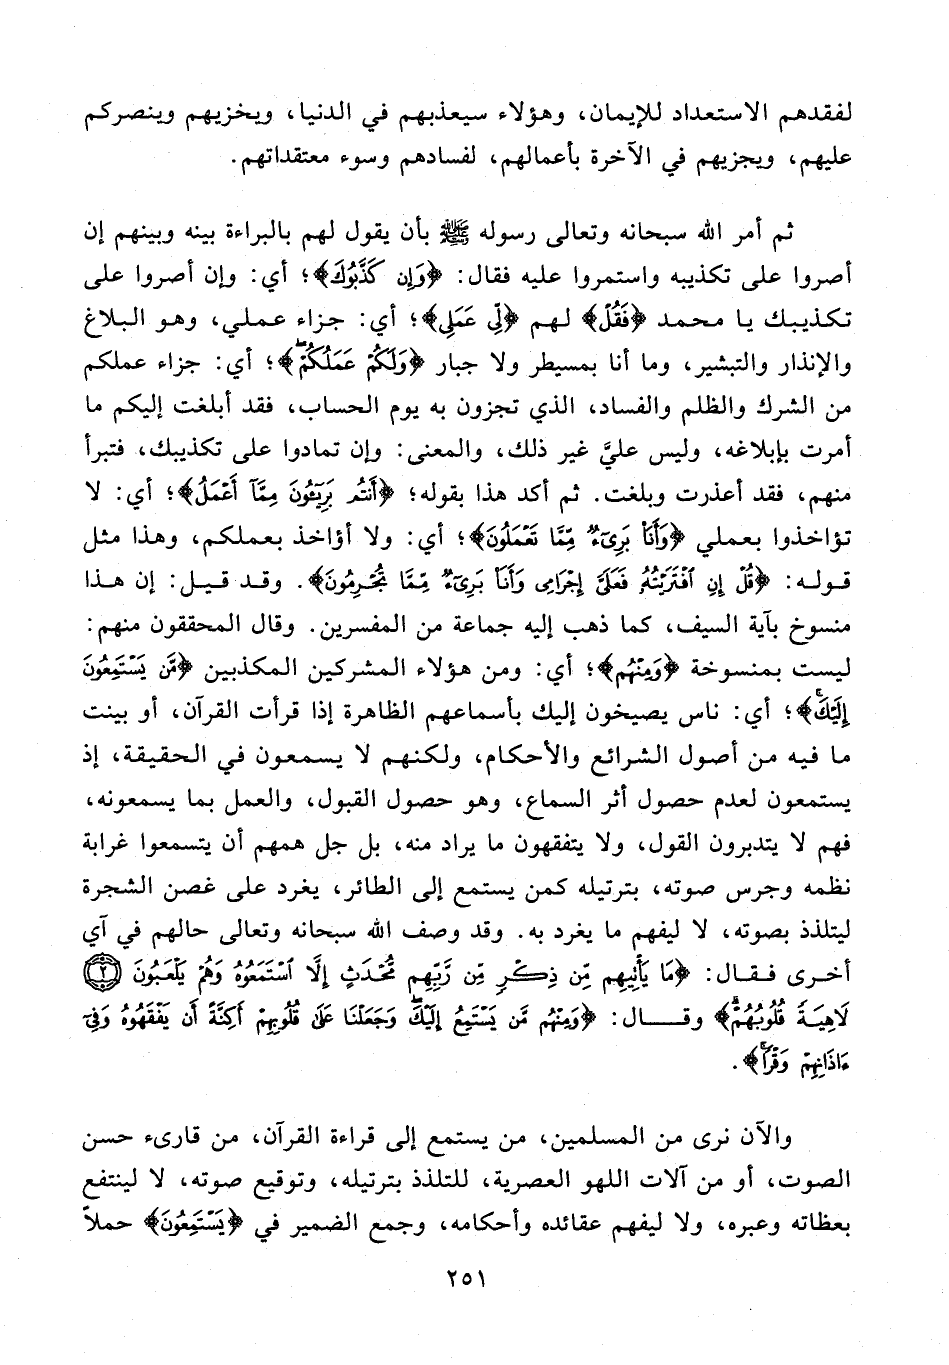 لفقدهم الاستعداد للإيمان، وهؤلاء سيعذبهم في الدنيا، ويخزيهم وينصركم
عليهم، ويجزيهم في الآخرة بأعمالهم، لفسادهم وسوء معتقداتهم.
ثم أمر الله سبحانه وتعالى رسوله ﷺ بأن يقول لهم بالبراءة بينه وبينهم إن
أصروا على تكذيبه واستمروا عليه فقال: ﴿وَإِن كَذَّبُوكَ﴾؛ أي: وإن أصروا على
تكذيبك يا محمد ﴿فَقُل﴾ لهم ﴿لِّي عَمَلِي﴾؛ أي: جزاء عملي، وهو البلاغ
والإنذار والتبشير، وما أنا بمسيطر ولا جبار ﴿وَلَكُمْ عَمَلُكُمْۖ﴾؛ أي: جزاء عملكم
من الشرك والظلم والفساد، الذي تجزون به يوم الحساب، فقد أبلغت إليكم ما
أمرت بإبلاغه، وليس عليَّ غير ذلك، والمعنى: وإن تمادوا على تكذيبك، فتبرأ
منهم، فقد أعذرت وبلغت. ثم أكد هذا بقوله؛ ﴿أَنتُم بَرِيٓـُٔونَ مِمَّآ أَعْمَلُ﴾؛ أي: لا
تؤاخذوا بعملي ﴿وَأَنَا۠ بَرِىٓءٌ مِّمَّا تَعْمَلُونَ﴾؛ أي: ولا أؤاخذ بعملكم، وهذا مثل
قوله: ﴿قُلْ إِنِ ٱفْتَرَيْتُهُۥ فَعَلَىَّ إِجْرَامِى وَأَنَا۠ بَرِىٓءٌ مِّمَّا تُجْرِمُونَ﴾. وقد قيل: إن هذا
منسوخ بآية السيف، كما ذهب إليه جماعة من المفسرين. وقال المحققون منهم:
ليست بمنسوخة ﴿وَمِنْهُم﴾؛ أي: ومن هؤلاء المشركين المكذبين ﴿مَّن يَسْتَمِعُونَ
إِلَيْكَۚ﴾؛ أي: ناس يصيخون إليك بأسماعهم الظاهرة إذا قرأت القرآن، أو بينت
ما فيه من أصول الشرائع والأحكام، ولكنهم لا يسمعون في الحقيقة، إذ
يستمعون لعدم حصول أثر السماع، وهو حصول القبول، والعمل بما يسمعونه،
فهم لا يتدبرون القول، ولا يتفقهون ما يراد منه، بل جل همهم أن يتسمعوا غرابة
نظمه وجرس صوته، بترتيله كمن يستمع إلى الطائر، يغرد على غصن الشجرة
ليتلذذ بصوته، لا ليفهم ما يغرد به. وقد وصف الله سبحانه وتعالى حالهم في آي
أخرى فقال: ﴿مَا يَأْتِيهِم مِّن ذِكْرٍ مِّن رَّبِّهِم مُّحْدَثٍ إِلَّا ٱسْتَمَعُوهُ وَهُمْ يَلْعَبُونَ ٢
لَاهِيَةً قُلُوبُهُمْۗ﴾ وقال: ﴿وَمِنْهُم مَّن يَسْتَمِعُ إِلَيْكَۖ وَجَعَلْنَا عَلَىٰ قُلُوبِهِمْ أَكِنَّةً أَن يَفْقَهُوهُ وَفِىٓ
ءَاذَانِهِمْ وَقْرًاۚ﴾.
والآن نرى من المسلمين، من يستمع إلى قراءة القرآن، من قارىء حسن
الصوت، أو من آلات اللهو العصرية، للتلذذ بترتيله، وتوقيع صوته، لا لينتفع
بعظاته وعبره، ولا ليفهم عقائده وأحكامه، وجمع الضمير في ﴿يَسْتَمِعُونَ﴾ حملاً
٢٥١